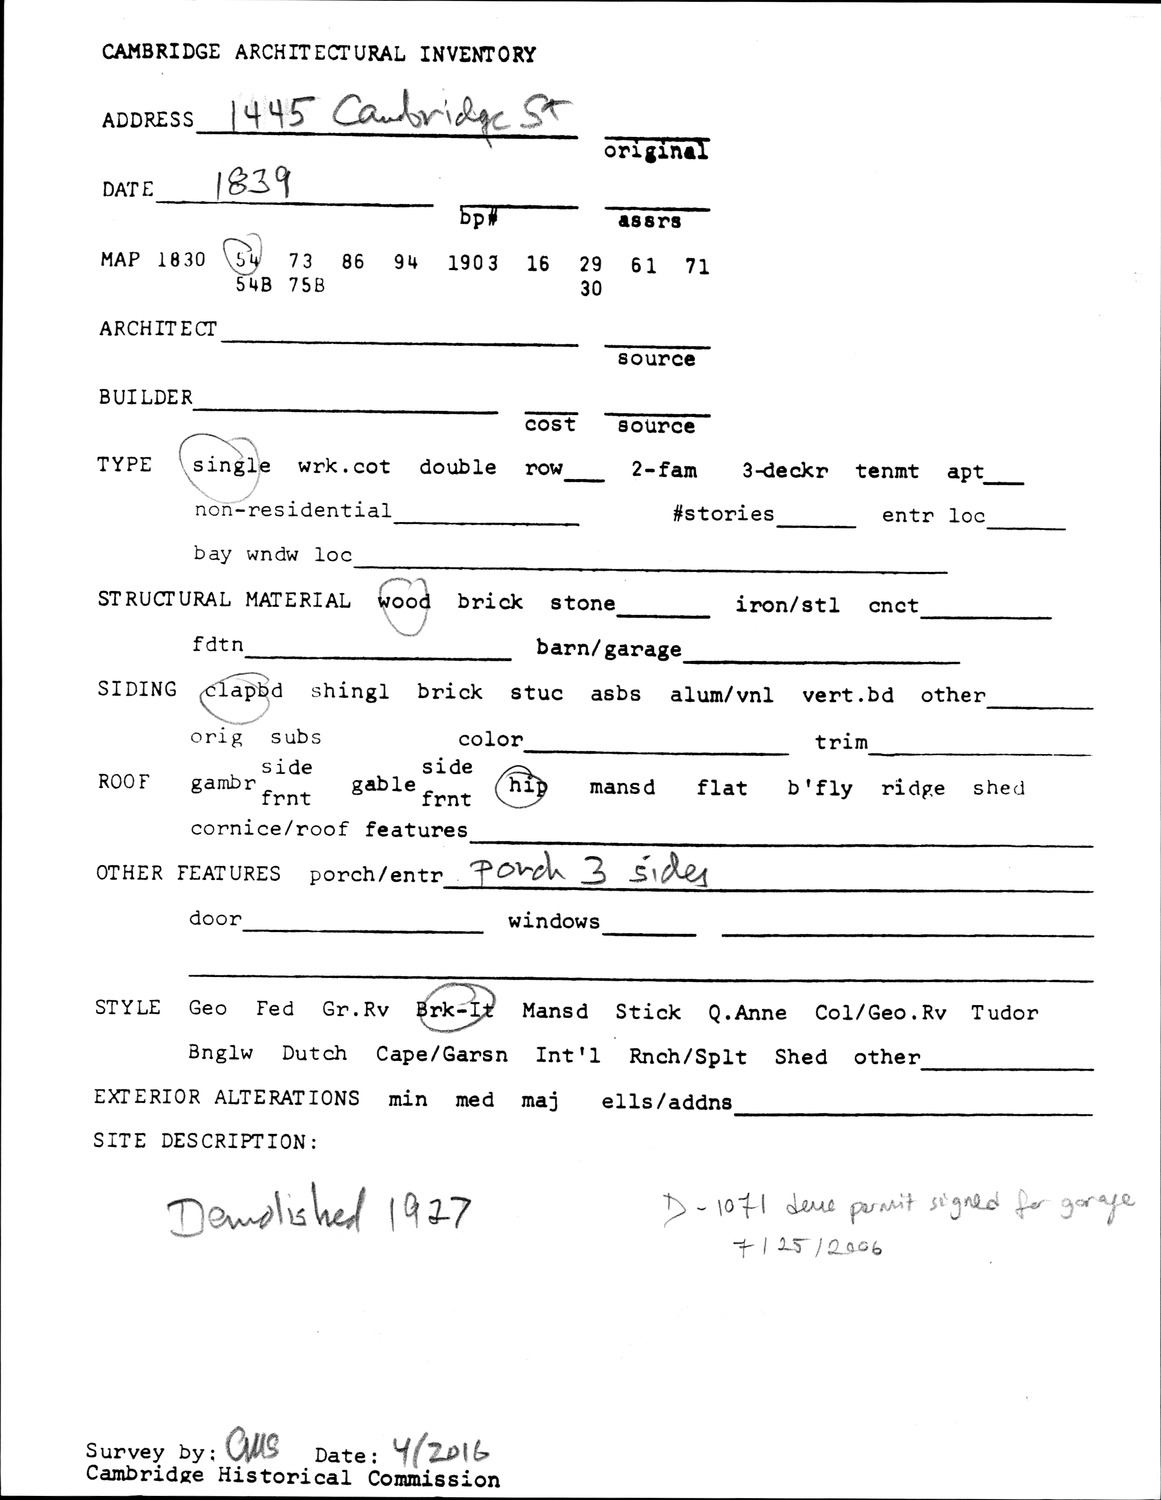 CAMBRIDGE ARCHITECTURAL INVENTORY
ADDRESS 1445 Cambridge St
original
DATE 1839
bp# assrs
MAP 1830 54 73 86 94 1903 16 29 61 71
54B 75B 30
ARCHITECT
source
BUILDER
cost source
TYPE single wrk.cot double row 2-fam 3-deckr tenmt apt
non-residential #stories entr loc
bay wndw loc
STRUCTURAL MATERIAL wood brick stone iron/stl cnct
fdtn barn/garage
SIDING clapbd shingl brick stuc asbs alum/vnl vert.bd other
orig subs color trim
side side
ROOF gambr gable hip mansd flat b'fly ridge shed
frnt frnt
cornice/roof features
OTHER FEATURES porch/entr Porch 3 sides
door windows
STYLE Geo Fed Gr.Rv Brk-It Mansd Stick Q.Anne Col/Geo.Rv Tudor
Bnglw Dutch Cape/Garsn Int'l Rnch/Splt Shed other
EXTERIOR ALTERATIONS min med maj ells/addns
SITE DESCRIPTION:
Demolished 1927 D-1071 permit signed for garage
7/25/2006
Survey by: Date: 4/2016
Cambridge Historical Commission